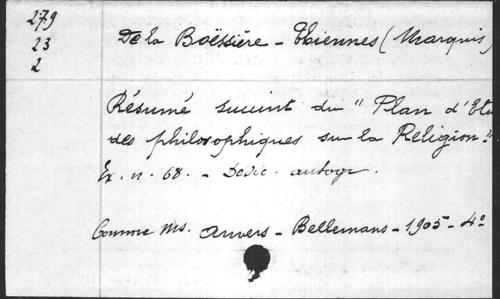 279
23
2
De la Boëssière - Thiennes (Marquis)
Résumé succint du "Plan d'Etu
des philosophiques sur la Religion."
Ex. n. 68. - Dedic. autogr.
Comme Ms. Anvers - Bellemans - 1905 - 4º